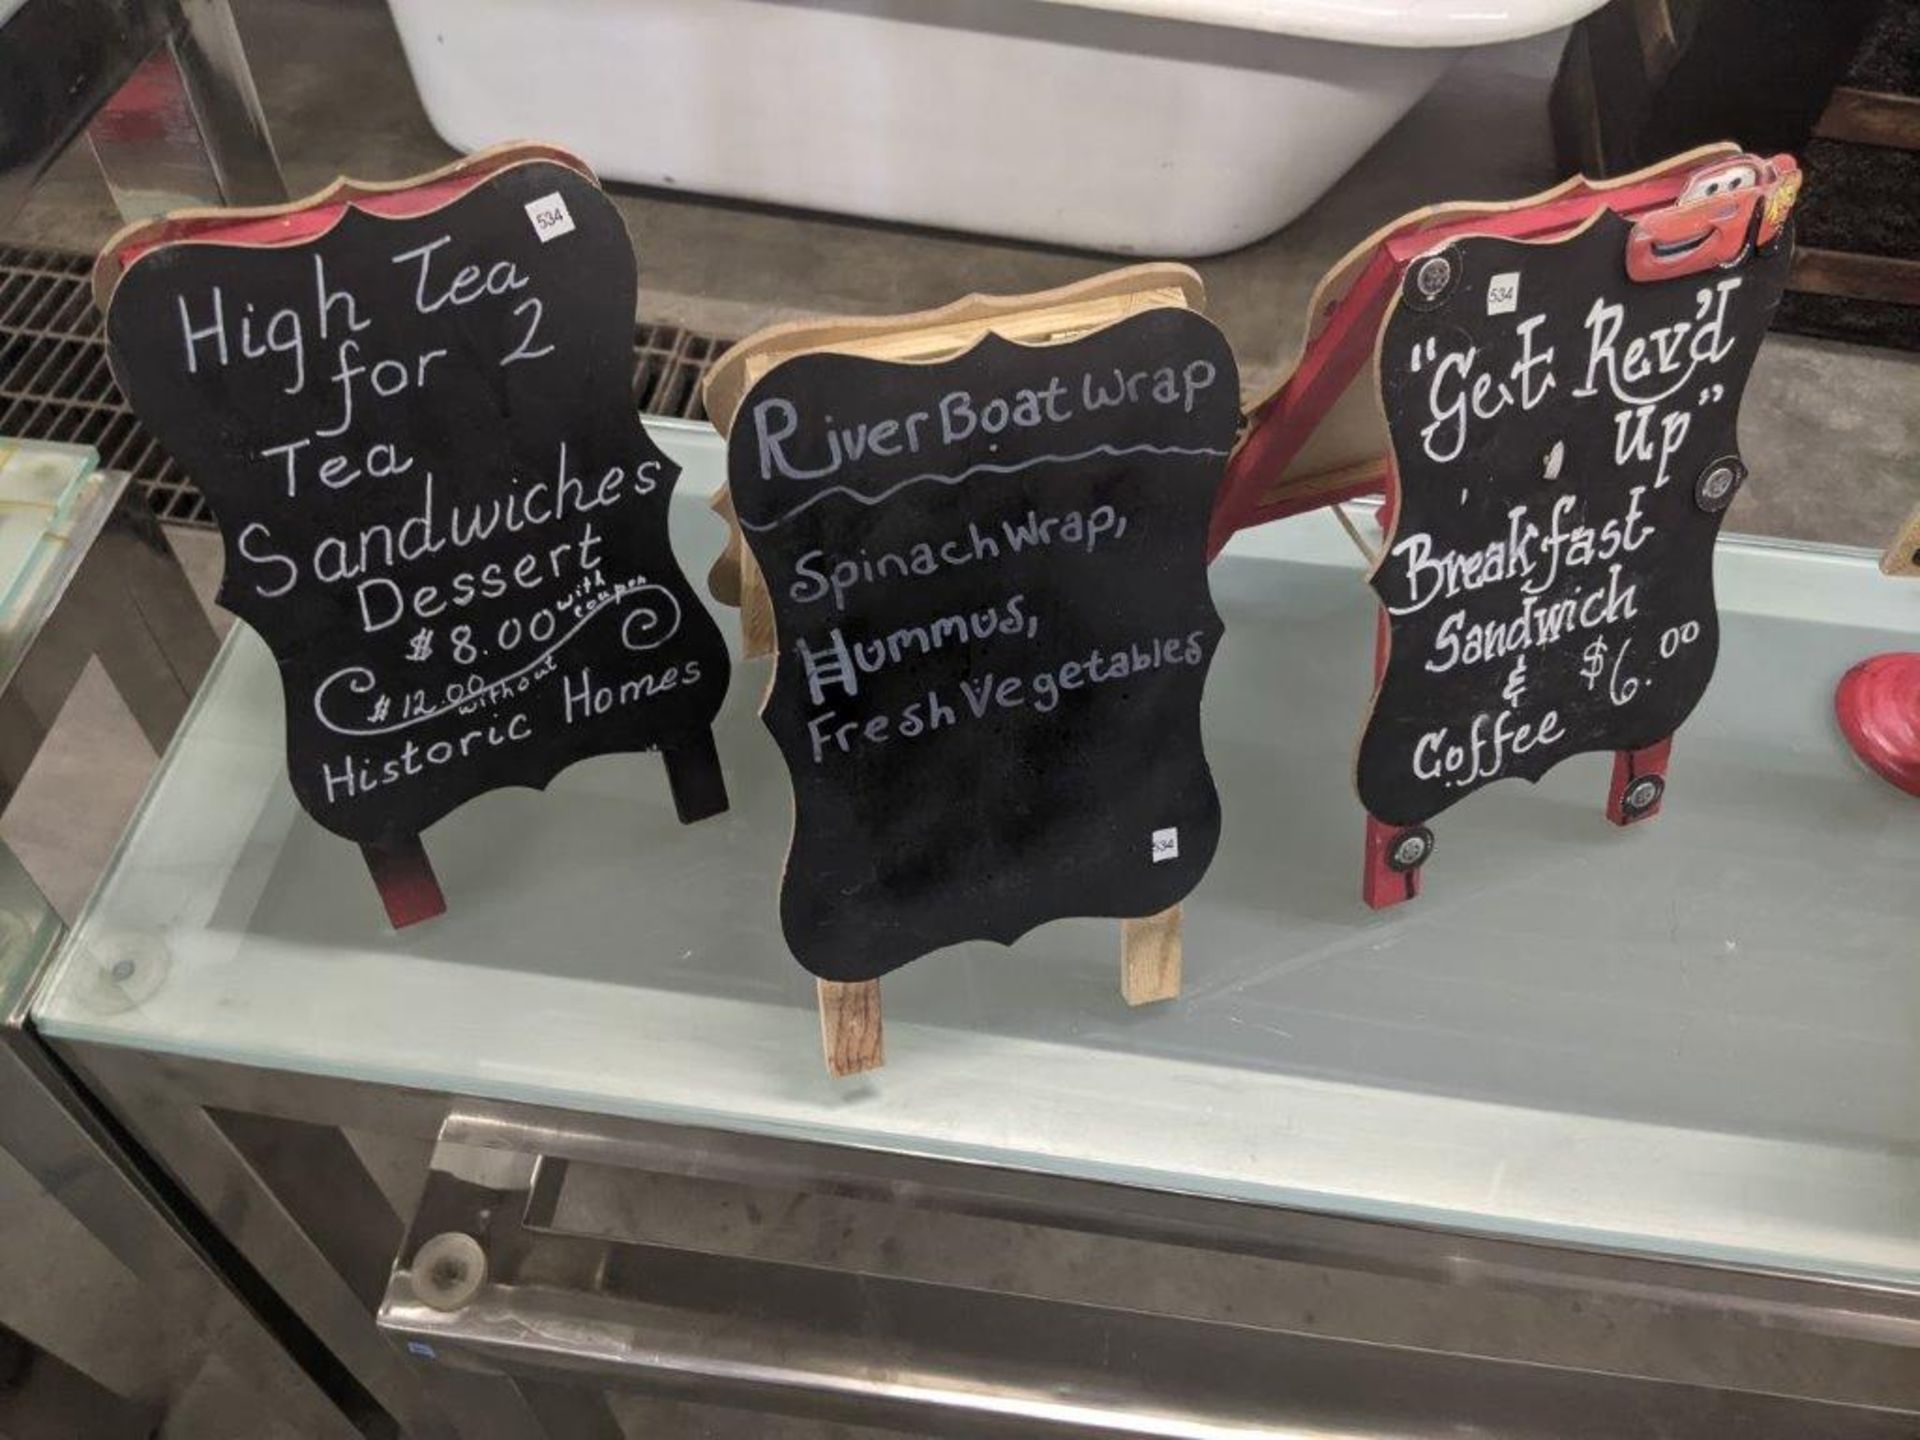 534
High Tea
for 2
Tea
Sandwiches
Dessert
$8.00 with coupon
$12.00 without
Historic Homes
RiverBoat Wrap
Spinach Wrap,
Hummus,
Fresh Vegetables
534
534
"Get Rev'd
Up"
Breakfast
Sandwich
& $6.00
Coffee